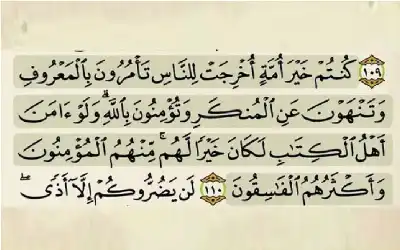 ﴿١٠٩﴾ كُنتُمْ خَيْرَ أُمَّةٍ أُخْرِجَتْ لِلنَّاسِ تَأْمُرُونَ بِالْمَعْرُوفِ
وَتَنْهَوْنَ عَنِ الْمُنكَرِ وَتُؤْمِنُونَ بِاللَّهِ ۗ وَلَوْ ءَامَنَ
أَهْلُ الْكِتَابِ لَكَانَ خَيْرًا لَّهُم ۚ مِّنْهُمُ الْمُؤْمِنُونَ
وَأَكْثَرُهُمُ الْفَاسِقُونَ ﴿١١٠﴾ لَن يَضُرُّوكُمْ إِلَّا أَذًى ۖ